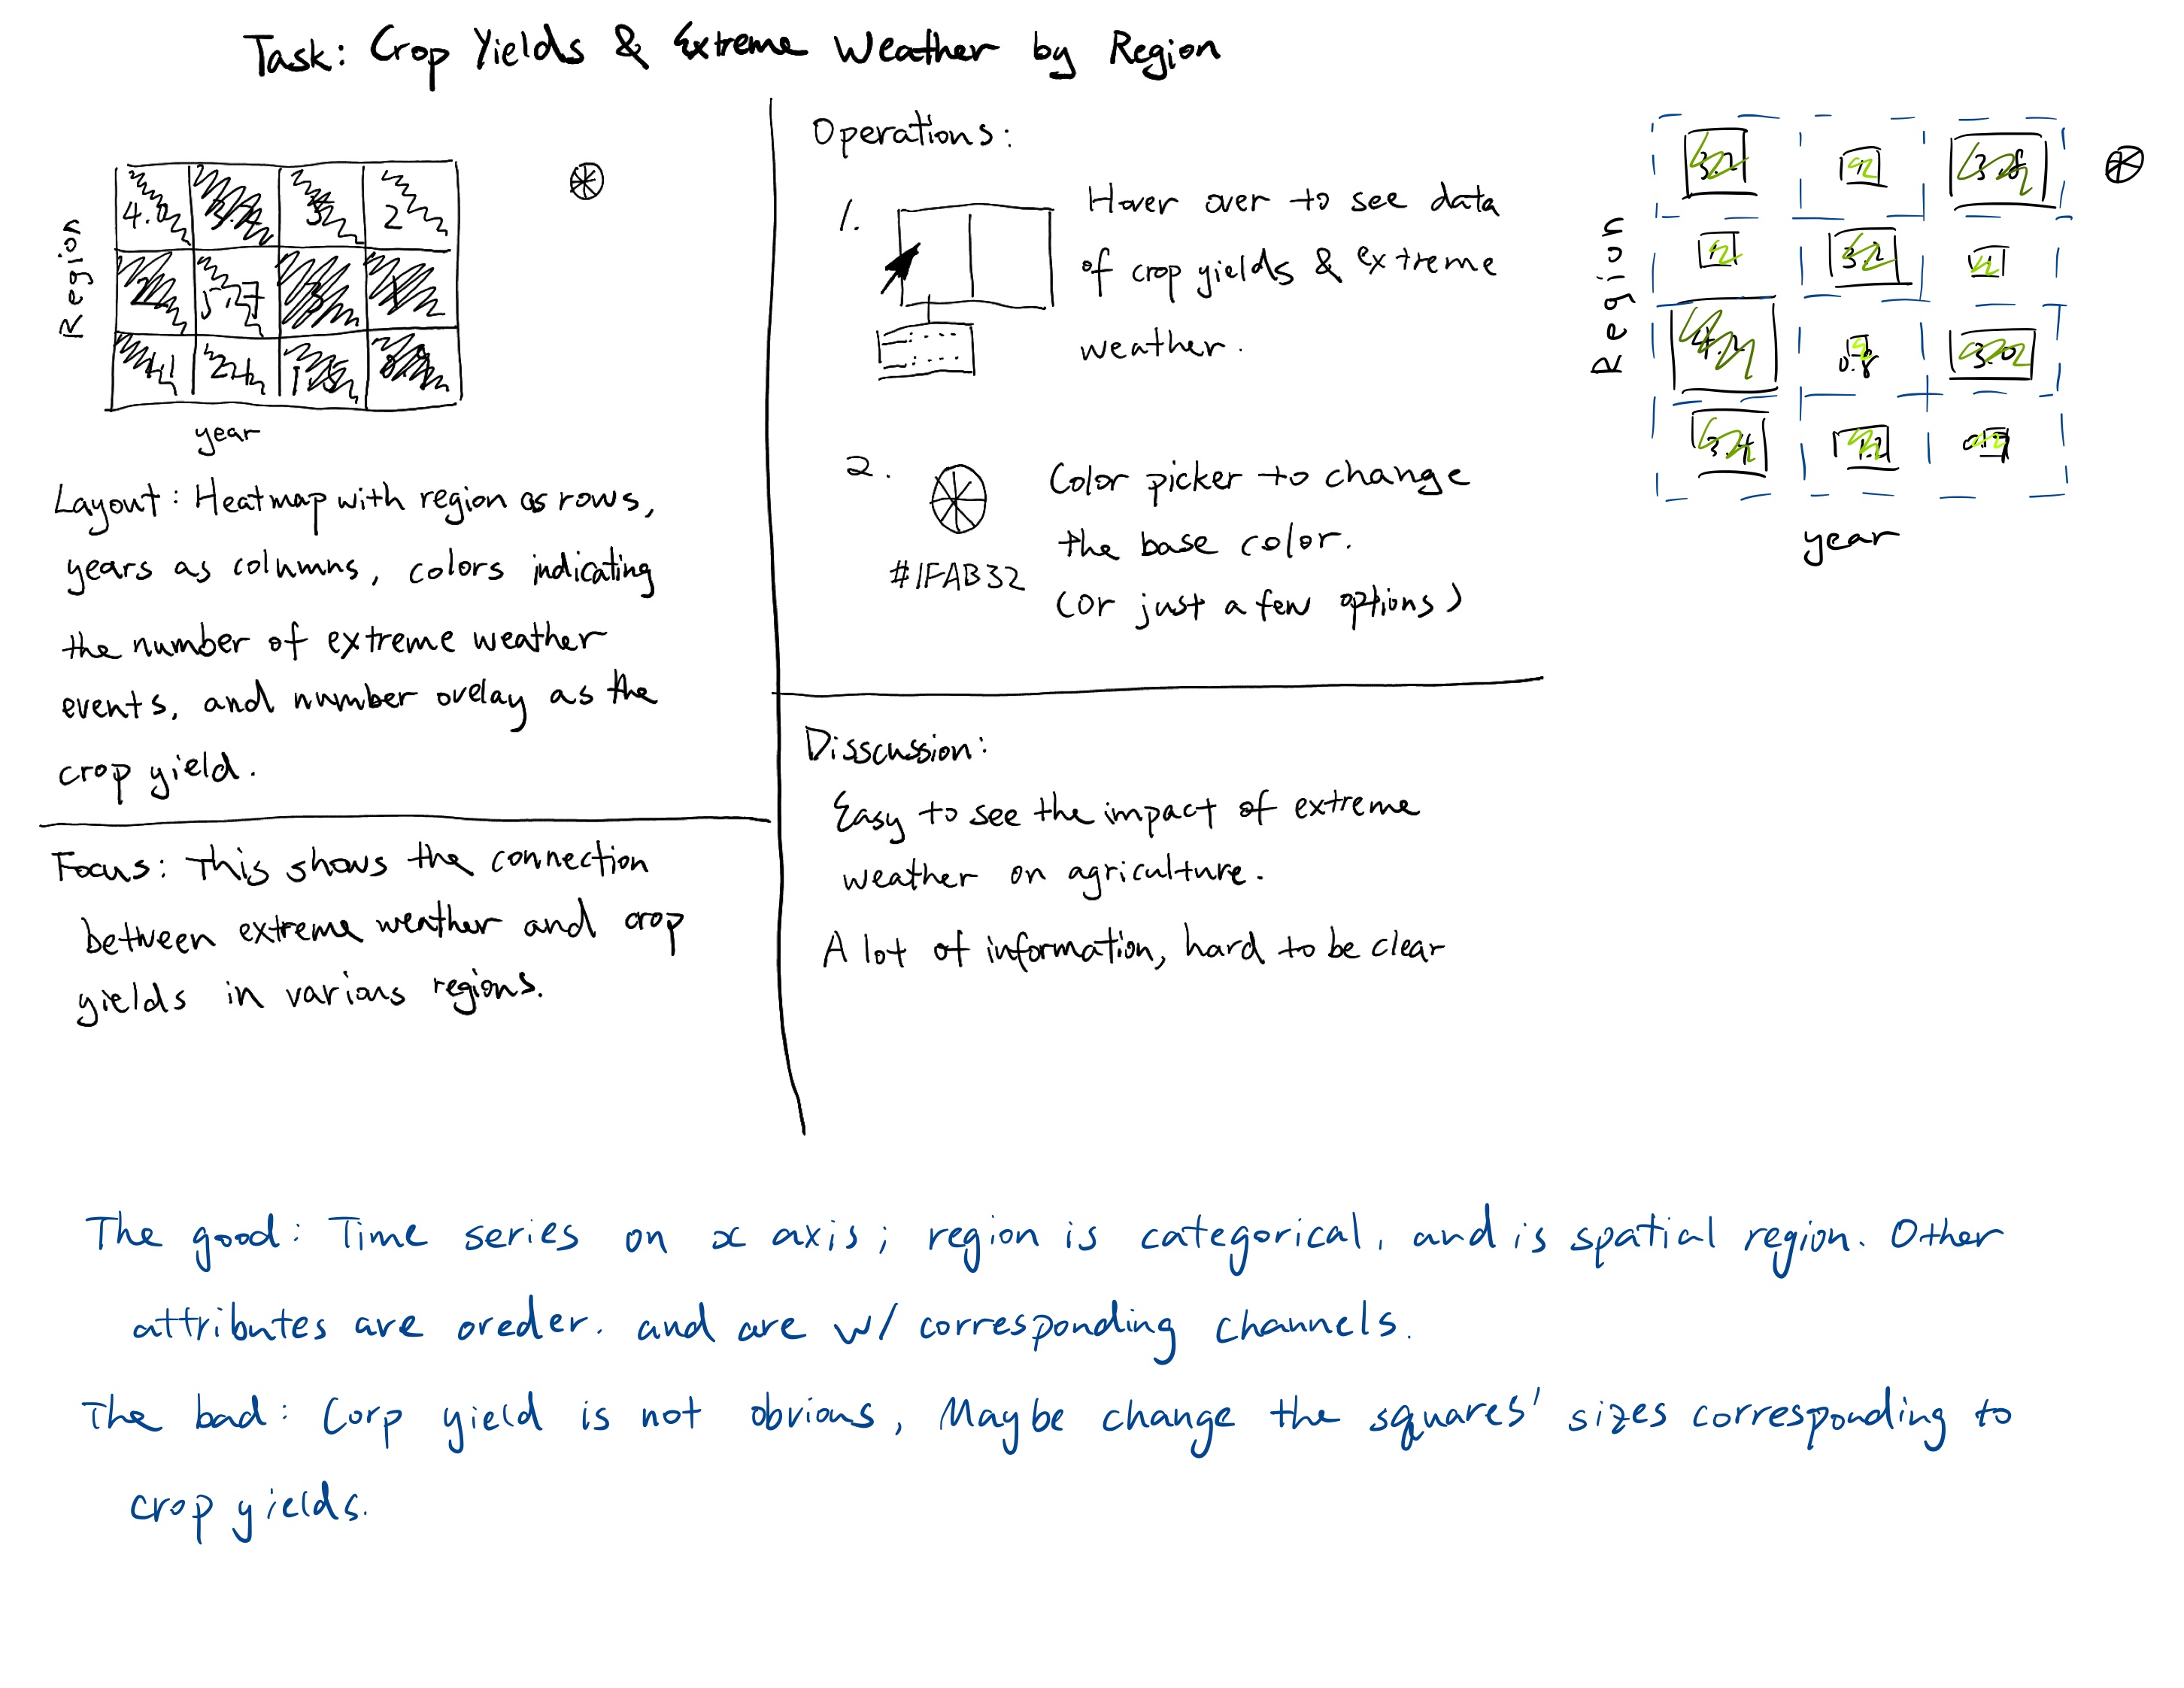 Task: Crop Yields & Extreme Weather by Region
Region
4.0
3.2
3
2
2
5.7
3
1
4.1
2.4
1.5
0.9
year
Layout: Heatmap with region as rows,
years as columns, colors indicating
the number of extreme weather
events, and number ovelay as the
crop yield.
Focus: This shows the connection
between extreme weather and crop
yields in various regions.
Operations:
1.
Hover over to see data
of crop yields & extreme
weather.
2.
Color picker to change
the base color.
(or just a few options)
#1FAB32
Disscussion:
Easy to see the impact of extreme
weather on agriculture.
A lot of information, hard to be clear
Region
3.2
3.8
3.2
4.2
0.8
3.02
3.4
1.2
year
The good: Time series on x axis; region is categorical, and is spatial region. Other
attributes are oreder. and are w/ corresponding channels.
The bad: Corp yield is not obvious, Maybe change the squares' sizes corresponding to
crop yields.